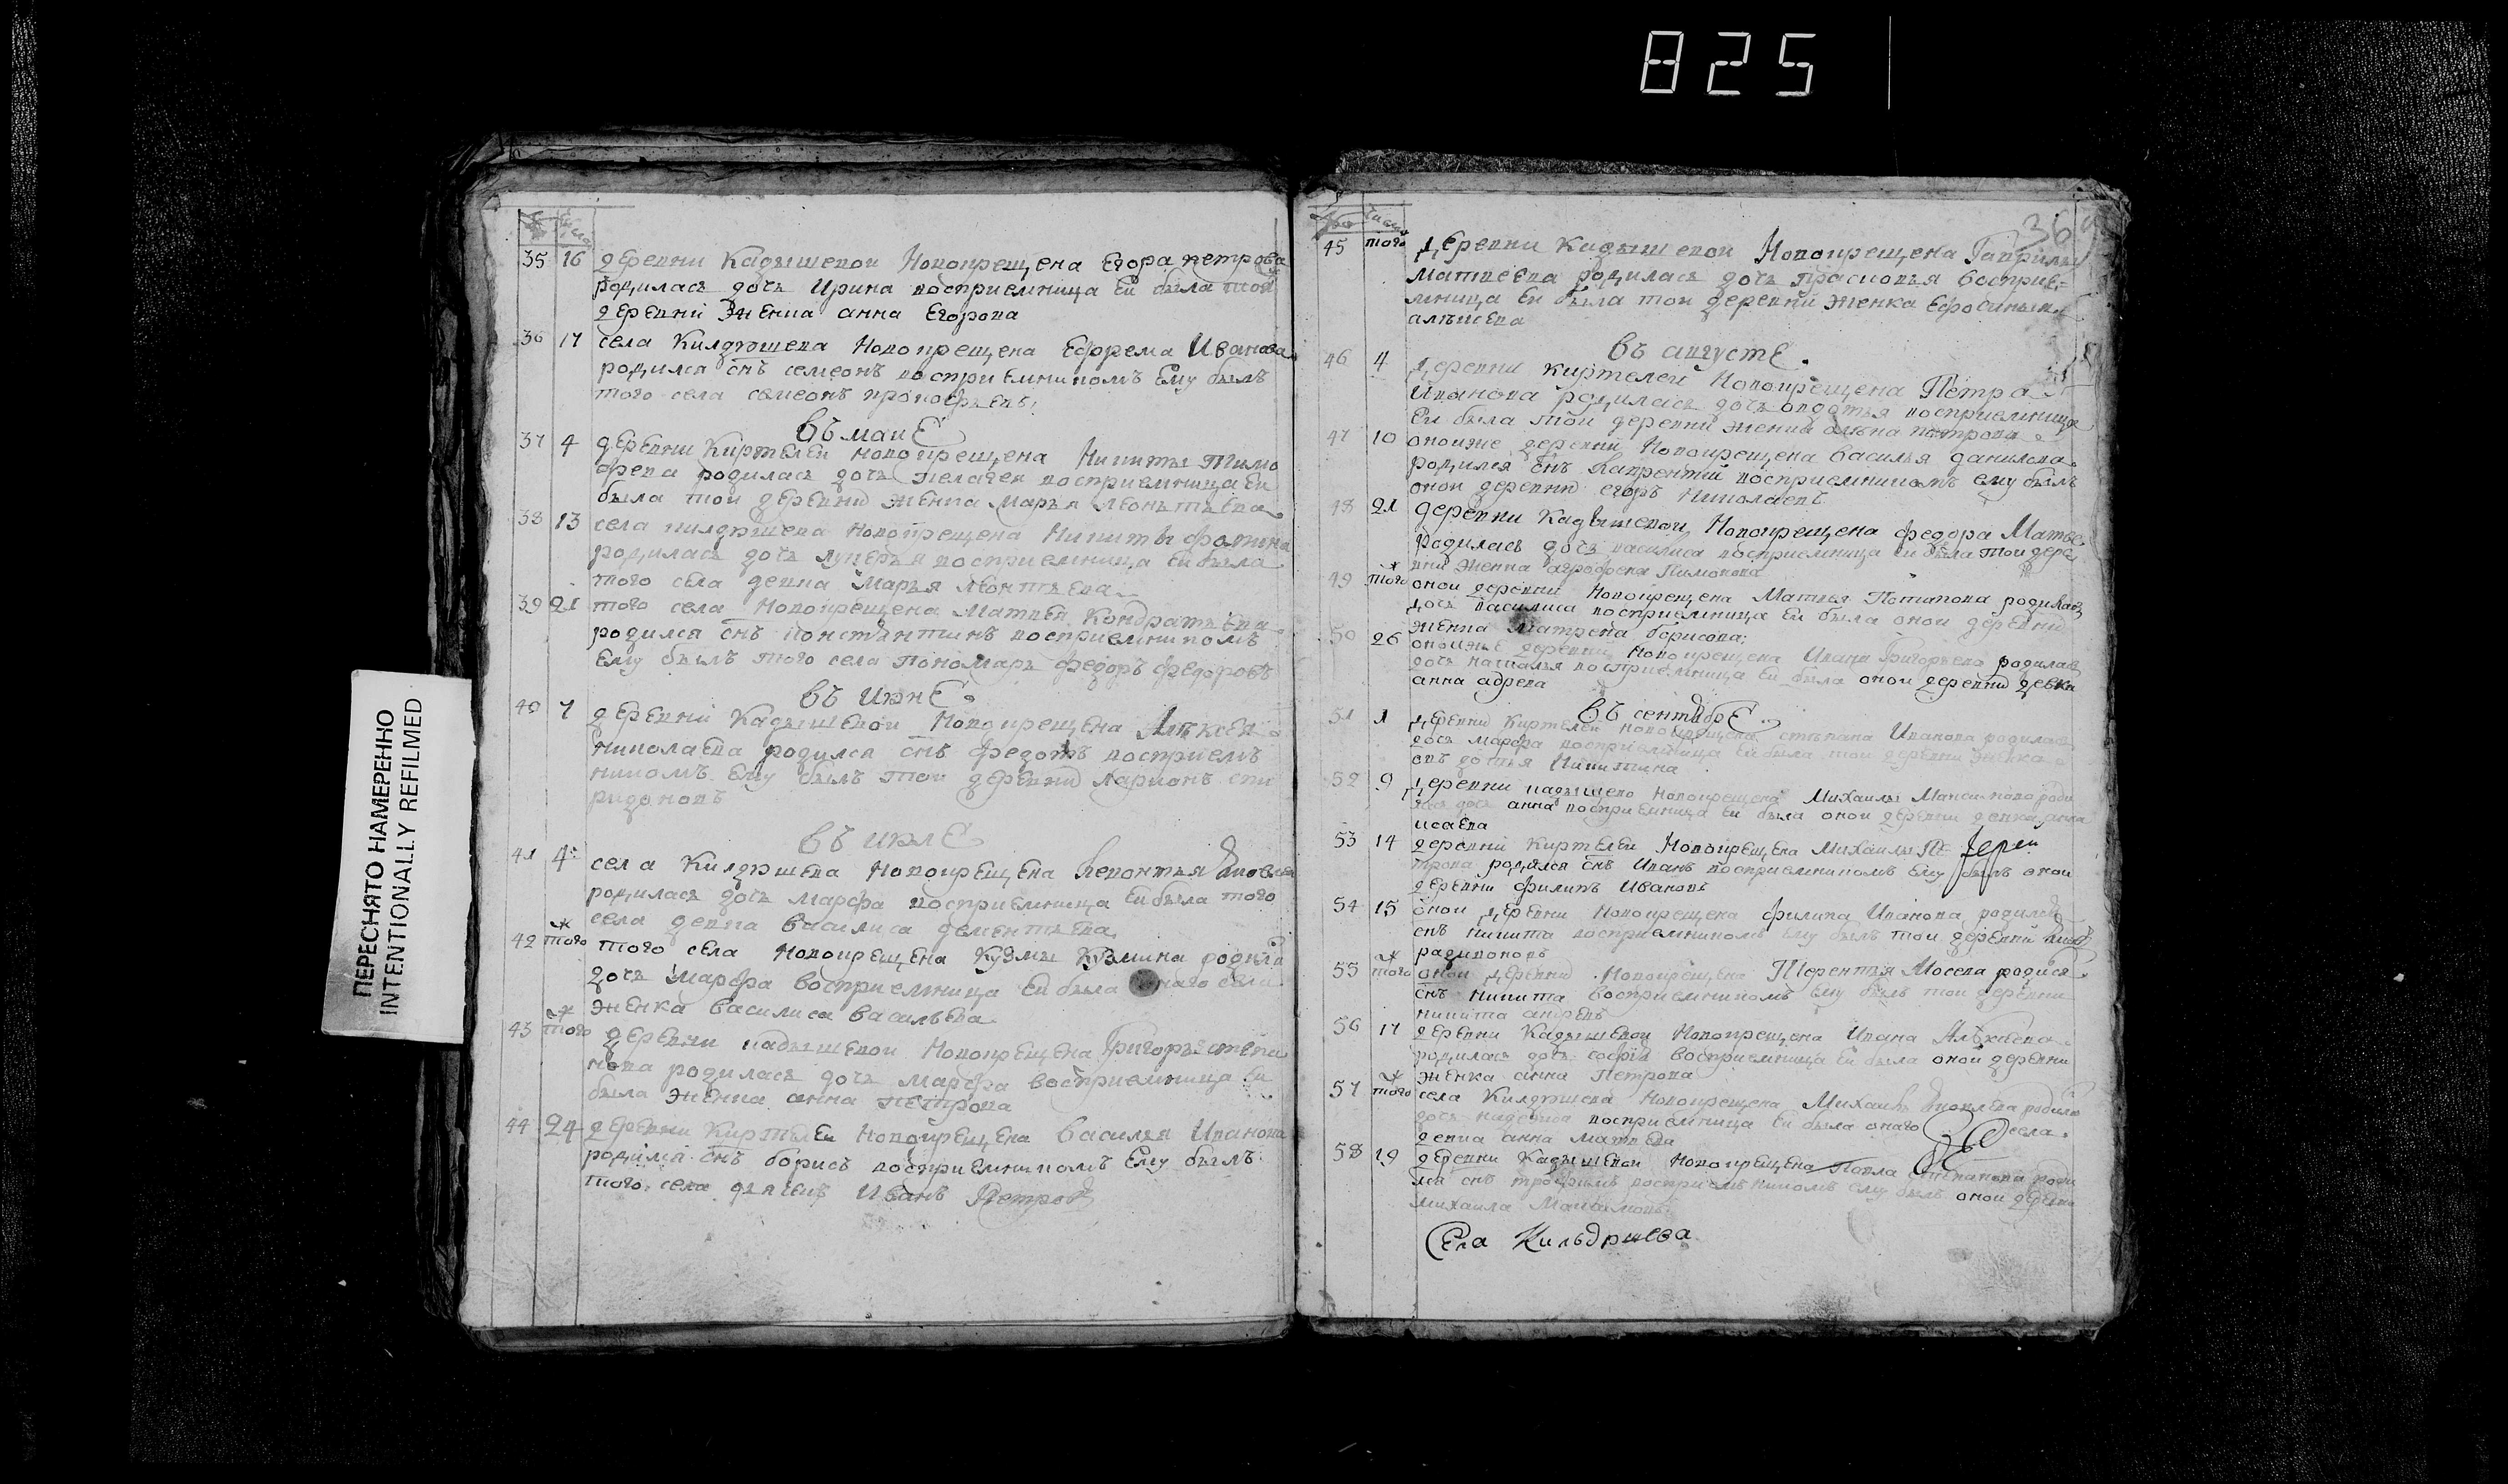 825
ПЕРЕСНЯТО НАМЕРЕННО
INTENTIONALLY REFILMED
35 16 деревни Кадышевои Новокрещена Егора петрова
родилась дочь Ирина восприемница Еи была тои
деревни Женка анна Егорова
36 17 села Килдюшева Новокрещена Ефрема Иванова
родился снъ семеонъ восприемникомъ Ему былъ
того села семеонъ прокофьевъ
въ маие
37 4 деревни Киртелеи новокрещена Никиты Тимо
феева родилась дочь пелагея восприемница Еи
была тои деревни Женка Марья леонтьева
38 13 села килдюшева Новокрещена Никиты
родилась дочь лукерья восприемница Еи была
того села девка Марья леонтьева
39 21 того села Новокрещена Матвея Кондратьева
родился снъ константинъ восприемникомъ
Ему былъ того села пономарь федоръ федоровъ
въ июнЕ
40 7 деревни Кадышевои Новокрещена Алексея
николаева родился снъ федотъ восприем
никомъ Ему былъ тои деревни ларионъ спи
ридоновъ
въ июлЕ
41 4 села Килдюшева Новокрещена Леонтья Яковлева
родилась дочь марфа восприемница Еи была того
села девка василиса дементьева
42 того того села Новокрещена Кузмы Кузмина родила
дочь марфа восприемница Еи была онаго села
женка василиса васильева
43 того деревни кадышевои Новокрещена Григорья степа
нова родилась дочь марфа восприемница Еи
была женка анна петрова
44 24 деревни Киртелеи Новокрещена василья Иванова
родился снъ борисъ восприемникомъ Ему былъ
того села дьячекъ Иванъ Петровъ
369
45 того деревни Кадышевои Новокрещена Гаврилы
матвеева родилась дочь прасковья восприе
мница Еи была тои деревни женка Ефросинья
въ августЕ
46 4 деревни киртелеи Новокрещена Петра
Иванова родилась дочь авдотья восприемница
Еи была тои деревни женка алена петрова
47 10 оноиже деревни Новокрещена василья данилова
родился снъ лаврентии восприемникомъ ему былъ
онои деревни егоръ Николаевъ
48 21 деревни Кадышевои Новокрещена федора Матве
родилась дочь василиса восприемница Еи была тои дере
вни женка агрофена
49 того онои деревни Новокрещена Матвея Потапова родилась
дочь василиса восприемница Еи была онои деревни
женка матрена борисова
50 26 оноиже деревни Новокрещена Ивана Григорьева родилась
дочь наталья восприемница Еи была онои деревни девка
анна
въ сентябрЕ
51 1 деревни Киртелеи новокрещена степана Иванова родилась
дочь марфа восприемница Еи была тои деревни женка
Никитина
52 9 деревни кадышево новокрещена Михаилы Максимова роди
лась дочь анна восприемница Еи была онои деревни девка анна
исаева
53 14 деревни Киртелеи Новокрещена Михаилы Пе
трова родился снъ Иванъ восприемникомъ Ему былъ онои
деревни филипъ Ивановъ
54 15 онои деревни Новокрещена филипа Иванова родился
снъ никита восприемникомъ Ему былъ тои деревни
радионовъ
55 того онои деревни Новокрещена Терентья Мосева родися
снъ никита восприемникомъ Ему былъ тои деревни
никита
56 17 деревни Кадышевои Новокрещена Ивана Алексеева
родилась дочь софия восприемница Еи была онои деревни
женка анна Петрова
57 того села Килдюшева Новокрещена Михаилы Яковлева родила
дочь восприемница Еи была онаго села
девка анна матвеева
58 19 деревни Кадышевои Новокрещена Павла Степанова роди
ся снъ трофимъ восприемникомъ ему былъ онои деревни
михаила Максимовъ
Села Кильдюшева